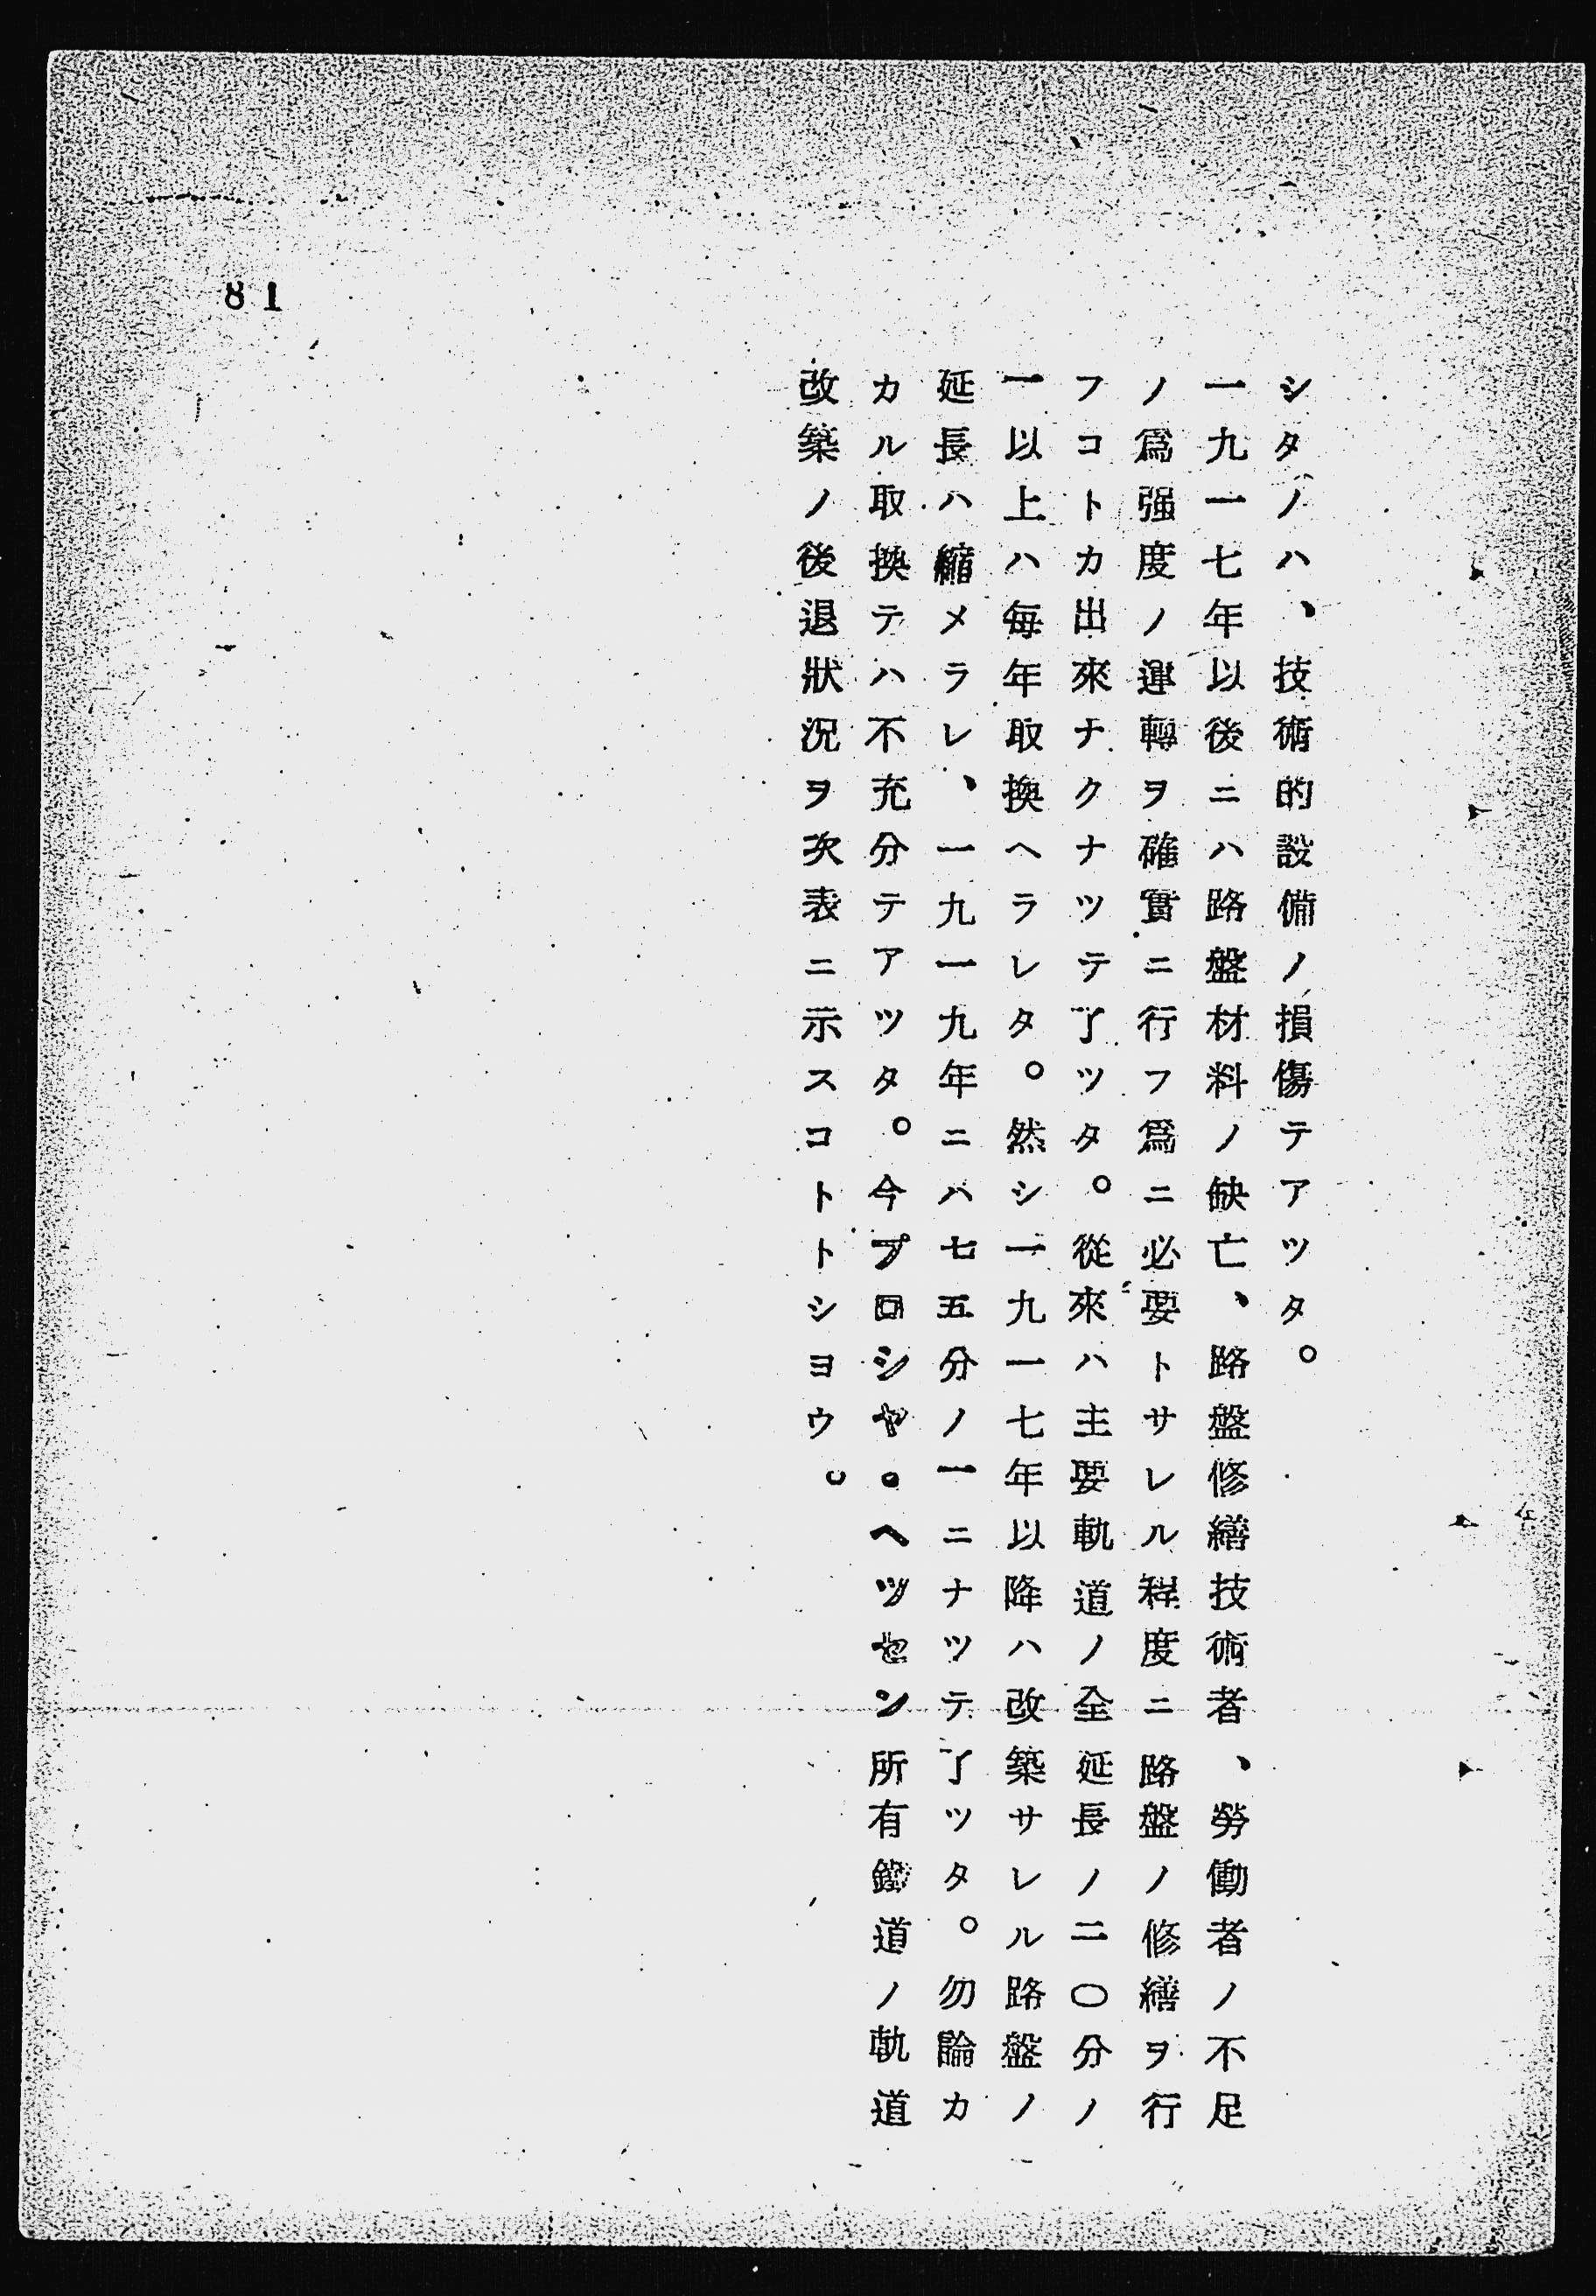 シタノハ、技術的設備ノ損傷テアツタ。
一九一七年以後ニハ路盤材料ノ缺亡、路盤修繕技術者、勞働者ノ不足
ノ爲强度ノ運轉ヲ確實ニ行フ爲ニ必要トサレル程度ニ路盤ノ修繕ヲ行
フコトカ出來ナクナツテ了ツタ。從來ハ主要軌道ノ全延長ノ二〇分ノ
一以上ハ每年取換ヘラレタ。然シ一九一七年以降ハ改築サレル路盤ノ
延長ハ縮メラレ、一九一九年ニハ七五分ノ一ニナツテ了ツタ。勿論カ
カル取換テハ不充分テアツタ。今プロシヤ。ヘツセン所有鐵道ノ軌道
改築ノ後退狀況ヲ次表ニ示スコトトシヨウ。
81